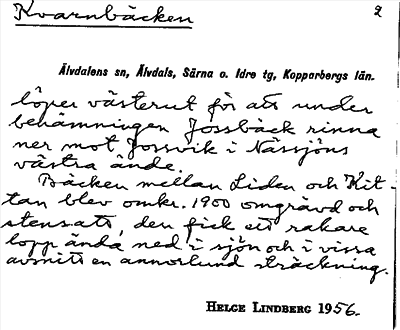 Kvarnbäcken
2
Älvdalens sn, Älvdals, Särna o. Idre tg, Kopparbergs län.
löper västerut för att under
benämningen Jossbäck rinna
ner mot Jossvik i Nässjöns
västra ände.
Bäcken mellan Liden och Kit-
tan blev omkr. 1900 omgrävd och
stensatt, den fick ett rakare
lopp ända ned i sjön och i vissa
avsnitt en annorlund sträckning.
HELGE LINDBERG 1956.